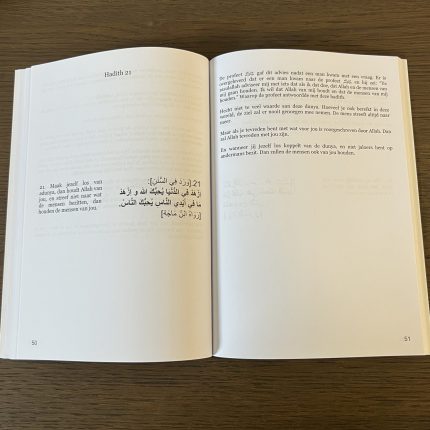 Hadith 21
21. Maak jezelf los van
adunya, dan houdt Allah van
jou, en streef niet naar wat
de mensen bezitten, dan
houden de mensen van jou.
21. [وَرَدَ فِي السُّنَنِ]:
ازْهَدْ فِي الدُّنْيَا يُحِبَّكَ الله وَ ازْهَدْ
مَا فِي أَيْدِي النَّاسِ يُحِبَّكَ النَّاسُ.
[رَوَاهُ ابْنُ مَاجَهْ]
50
De profeet ﷺ gaf dit advies nadat een man kwam met een vraag. Er is
overgeleverd dat er een man kwam naar de profeet ﷺ en hij zei: "Ya
rasulallah adviseer mij met iets dat als ik dat doe, dat Allah en de mensen van
mij gaan houden. Ik wil dat Allah van mij houdt en dat de mensen van mij
houden." Waarop de profeet antwoordde met deze hadith.
Hecht niet te veel waarde aan deze dunya. Hoeveel je ook bereikt in deze
wereld, de ziel zal er nooit genoegen mee nemen. De mens streeft altijd naar
meer.
Maar als je tevreden bent met wat voor jou is voorgeschreven door Allah. Dan
zal Allah tevreden met jou zijn.
En wanneer jij jezelf los koppelt van de dunya, en niet jaloers bent op
andermans bezit. Dan zullen de mensen ook van jou houden.
51